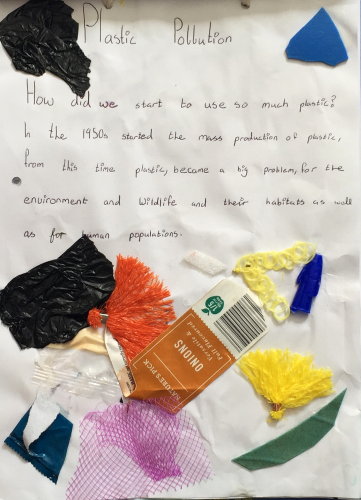 Plastic Pollution
How did we start to use so much plastic?
In the 1950s started the mass production of plastic,
from this time plastic, became a big problem, for the
environment and Wildlife and their habitats as well
as for human populations.
NATURE'S PICK
ONIONS
Versatile &
Full Flavoured